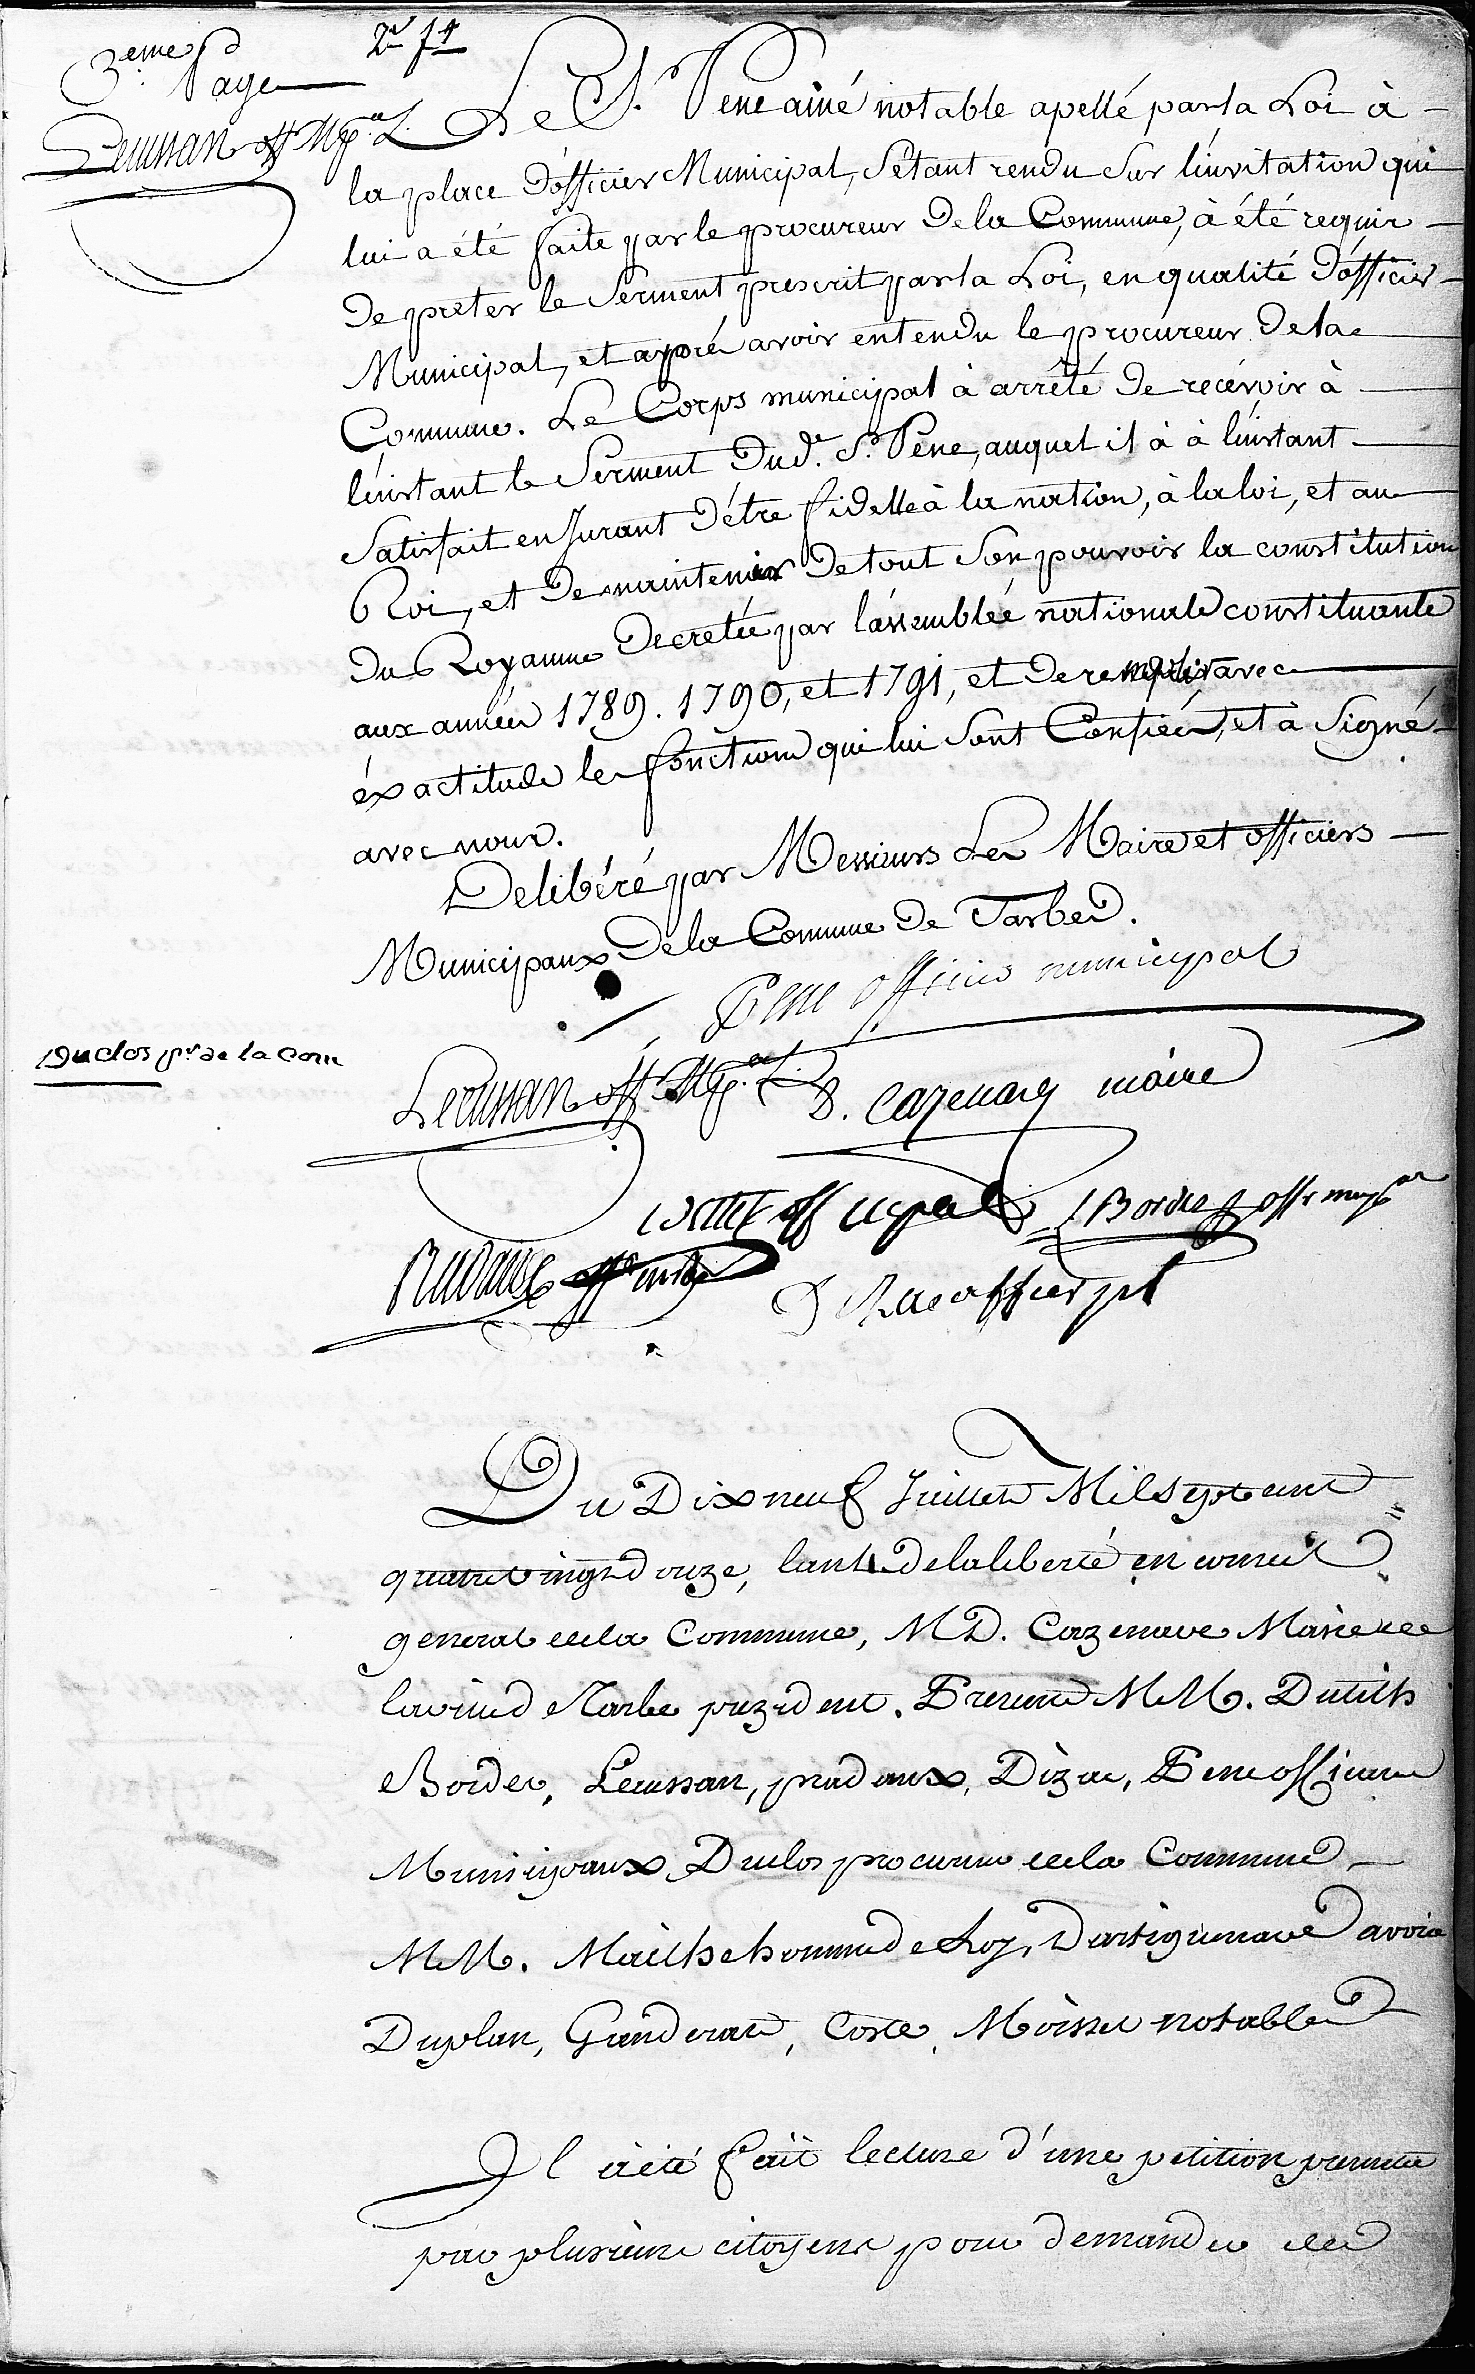 3.eme
Page
2e ft
Lecussan off. Mpal.
Le Sr. Pene ainé notable apellé par la Loi à
la place d'officier Municipal, S'étant rendu Sur l'invitation qui
lui a été faite par le procureur de la Commune, à été requis
de preter le Serment prescrit par la Loi, en qualité d'officier
Municipal, et aprés avoir entendu le procureur de la
Commune. Le Corps municipal à arrété de recévoir à
l'instant le Serment dud. Sr. Pene, auquel il à à l'instant
Satisfait en Jurant d'étre fidelle à la nation, à la loi, et au
Roi, et de maintenir de tout Son pouvoir la constitution
du Royaume decretée par l'assemblée nationale constituante
aux années 1789. 1790, et 1791, et de remplir avec
éxactitude les fonctions qui lui Sont Confiées, et à Signé
avec nous.
Delibéré par Messieurs Les Maire et officiers
Municipaux de la Commune de Tarbes.
Pene officier municipal
Duclos pr de la Com
Lecussan off. Mpal.
D. Cazenave maire
off mpal
Bordes off. mupal
off
officier pl
Du Dixneuf Juillet Mil Sept cent
quatre vingt douze, l'an 4 de la liberté en conseil
general de la Commune, M D. Cazenave Maire de
la ville de Tarbe prezident. Presents MM. Dutilh
Bordes, Lecussan, pradaux, Dizac, Pene officiers
Municipaux, Duclos procureur de la Commune
MM. Mailhe homme de Loy, Dartiguenave avoué
Duplan, Ganderats, Coste, Moisset notables
Il à été fait lecture d'une petition presentée
par plusieurs citoyens pour demander des